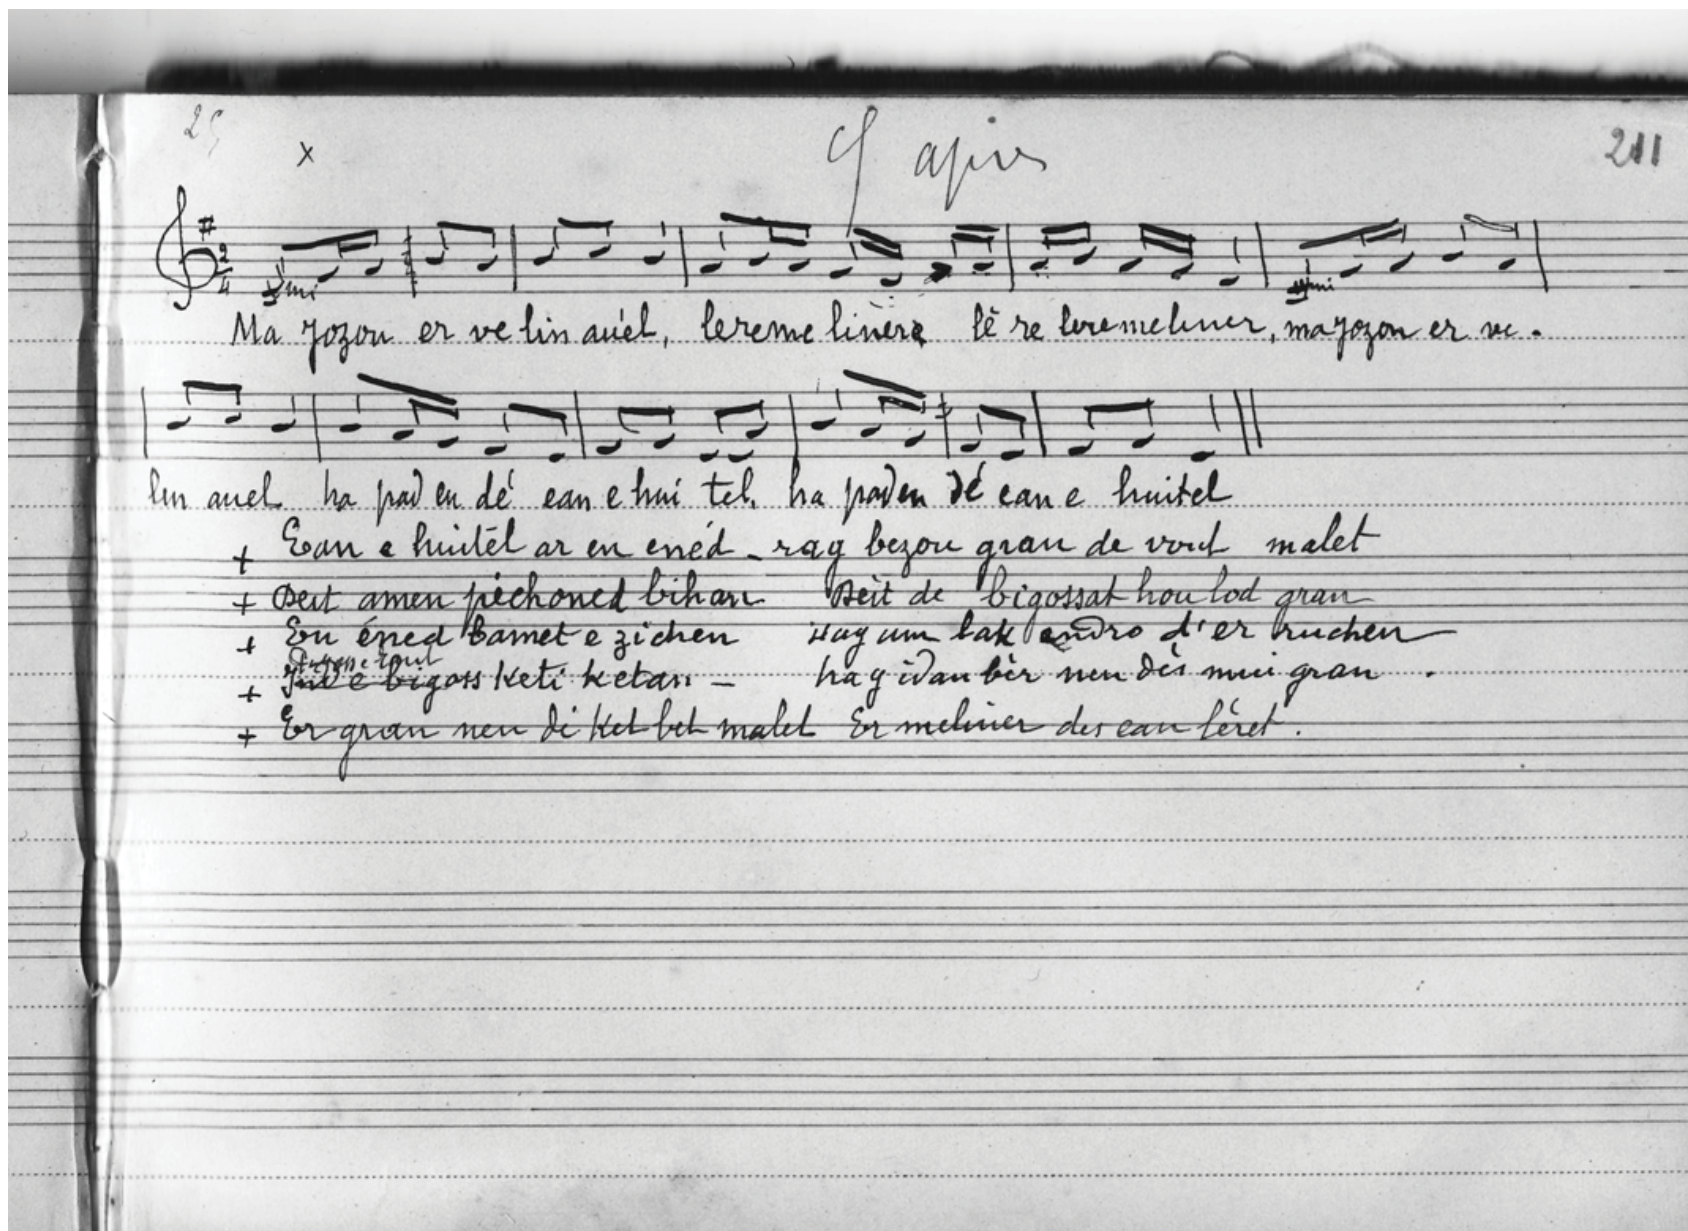 211
x
2
4
mi mi
Ma Jozon er ve lin auél, lereme linere lê re leremeliner, ma Jozon er ve-
lin auel ha pad en dé ean e hui tel, ha pad en dé ean e huitel
+ Ean e huitél ar en enéd - rag bezou gran de vout malet
+ Deit amen pèchoned bihan Deit de bigossat hou lod gran
+ En éned tamet e zichen Hag um lak endro d'er ruchen
+ e bigoss keti ketan - hag idan bèr nen dès mui gran .
+ Er gran nen di ket bet malet Er meliner des ean léret .